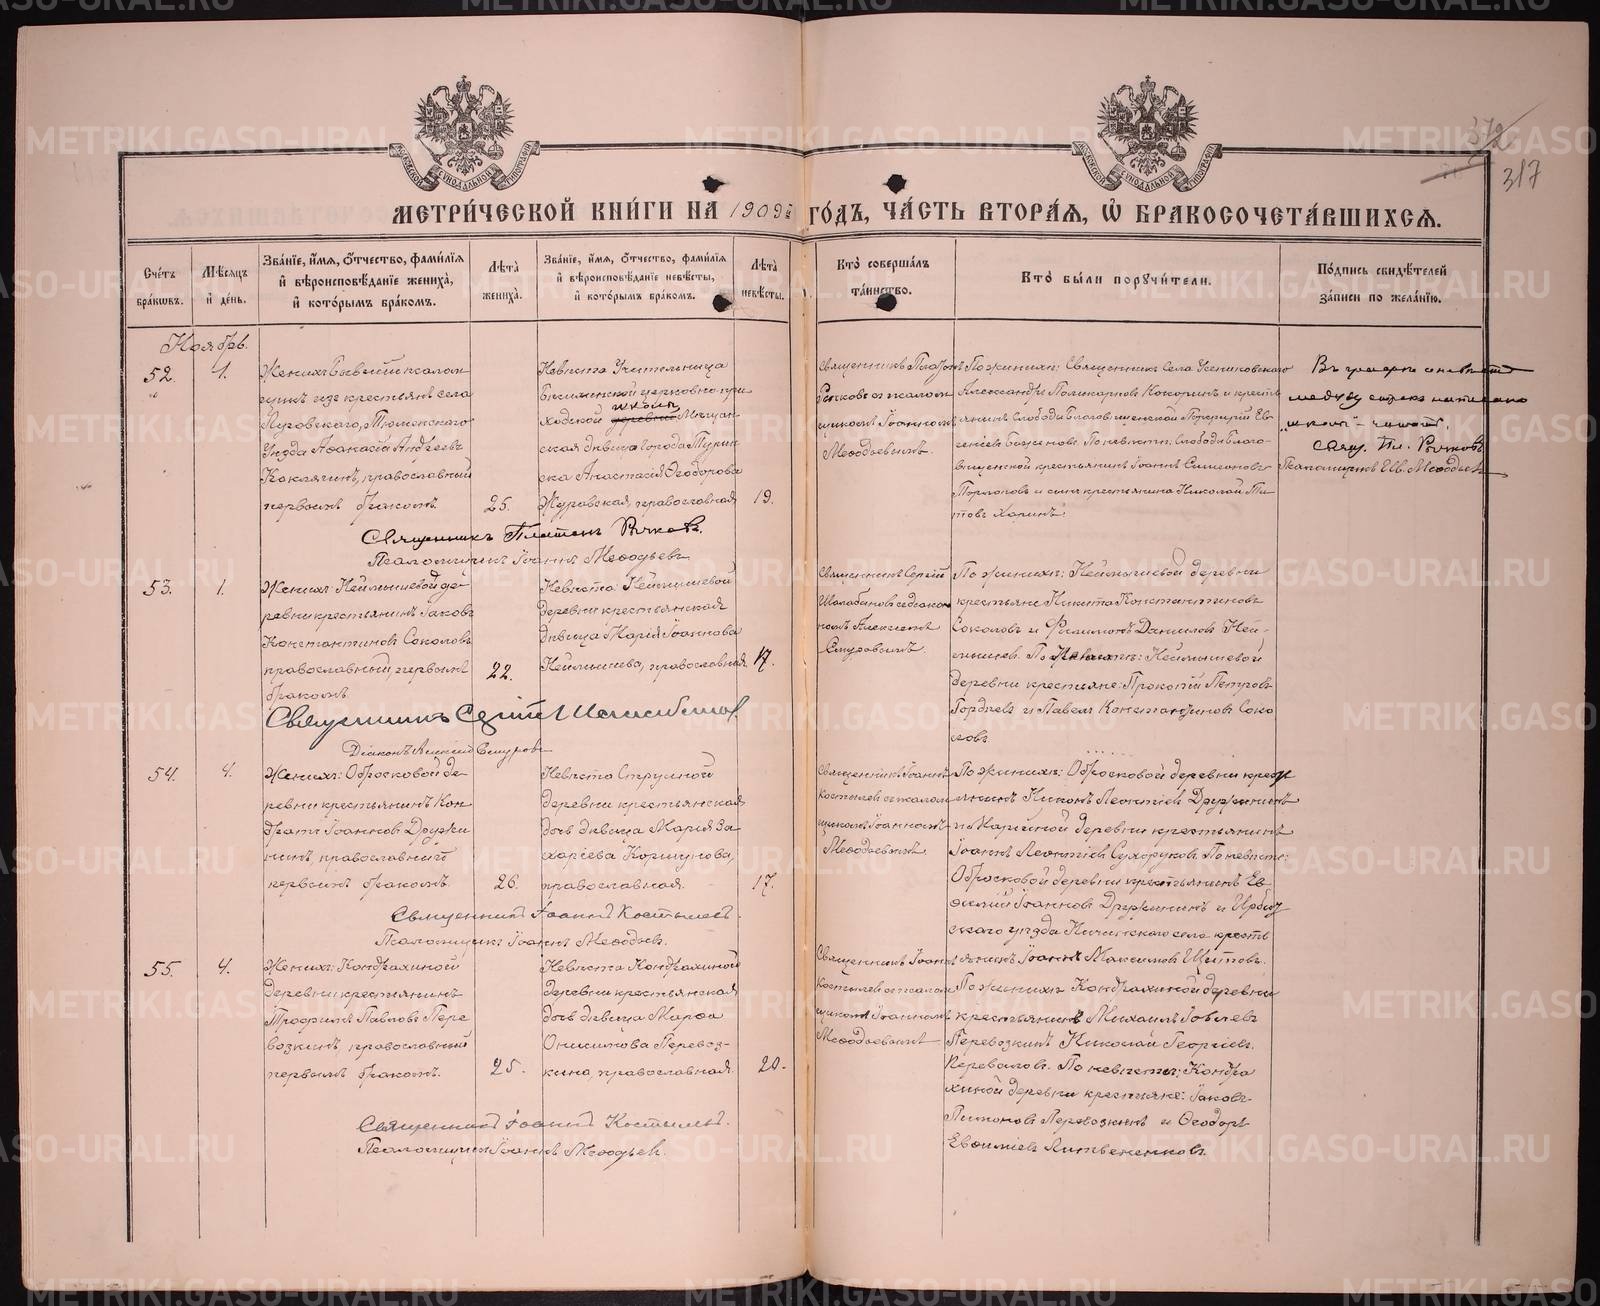 372
317
МЕТРИ́ЧЕСКОЙ КНИ́ГИ НА 1909й ГО́ДЪ, ЧА́СТЬ ВТОРА́Я, Ѡ БРАКОСОЧЕТА́ВШИХСЯ.
Сче́тъ бра́ковъ.
Мѣ́сяцъ и҆ де́нь.
Зва́нїе, и҆́мя, о҆́тчество, фами́лїя и҆ вѣроисповѣ́данїе жениха̀, и҆ кото́рымъ бра́комъ.
Лѣ́та жениха̀.
Зва́нїе, и҆́мя, о҆́тчество, фами́лїя и҆ вѣроисповѣ́данїе невѣ́сты, и҆ кото́рымъ бра́комъ.
Лѣ́та невѣ́сты.
Кто̀ соверша́лъ та́инство.
Кто̀ бы́ли порꙋчи́тели.
По́дпись свидѣ́телей за́писи по жела́нїю.
Ноябрь.
52.
1.
Женихъ Бывшій псалом
щикъ изъ крестьянъ села
Пуровскаго, Тюменскаго
Уѣзда Аѳанасій Андреевъ
православный
первымъ бракомъ
25.
Невѣста Учительница
церковно-при
ходской школы деревни Мѣщан
ская дѣвица города Турин
ска Анастасія Ѳеодорова
Журавская, православная
19.
Священникъ Платонъ
съ псалом
щикомъ Іоанномъ
Меѳодьевымъ.
По женихѣ: Священникъ Села
Александръ Поликарповъ Кокоринъ и кресть
янинъ Слободы Благовѣщенской Ев
геніевъ По невѣстѣ: Слободы Благо
вѣщенской крестьянинъ Іоаннъ Симеоновъ
и сынъ крестьянина Николай Ти
товъ Харинъ.
Въ графѣ о невѣстѣ
между строкъ написано
„школы" – читать.
Свящ. Пл.
Псаломщикъ Ив. Меѳодьевъ
Священникъ Платонъ
Псаломщикъ Іоаннъ Меѳодьевъ
53.
1.
Женихъ: Неймышевой де
ревни крестьянинъ Іаковъ
Константиновъ Соколовъ
православный, первымъ
бракомъ
22.
Невѣста Неймышевой
деревни крестьянская
дѣвица Марія Іоаннова
Неймышева, православная
17.
Священникъ Сергій
Шалабановъ съ діако
номъ Алексіемъ
По женихѣ: Неймышевой деревни
крестьяне Никита Константиновъ
Соколовъ и Филимонъ Даниловъ Ней-
мышевъ. По Невѣстѣ: Неймышевой
деревни крестьяне: Прокопій Петровъ
Гордѣевъ и Павелъ Константиновъ Соко
ловъ.
Священникъ Сергій Шалабановъ
Діаконъ Алексій
54.
4.
Женихъ: Обросковой де
ревни крестьянинъ Кон
дратъ Іоанновъ Дружи
нинъ, православный
первымъ бракомъ.
26.
Невѣста Струиной
деревни крестьянская
дочь дѣвица Марія За
харіева Коршунова,
православная.
17.
Священникъ Іоаннъ
Костылевъ съ псалом
щикомъ Іоанномъ
Меѳодьевымъ.
По женихѣ: Обросковой деревни крестья
янинъ Никонъ Леонтіевъ Дружининъ
и деревни крестьянинъ
Іоаннъ Леонтіевъ Сухоруковъ. По невѣстѣ:
Обросковой деревни крестьянинъ Ев
ѳимій Іоанновъ Дружининъ и Ирбит
скаго уѣзда села кресть
янинъ Іоаннъ Максимовъ Щитовъ.
Священникъ Іоаннъ Костылевъ
Псаломщикъ Іоаннъ Меѳодьевъ.
55.
4.
Женихъ: Кондрахиной
деревни крестьянинъ
Трофимъ Павловъ Пере
возкинъ, православный
первымъ бракомъ.
25.
Невѣста Кондрахиной
деревни крестьянская
дочь дѣвица Марѳа
Онисимова Перевоз-
кина, православная.
20.
Священникъ Іоаннъ
Костылевъ съ псалом
щикомъ Іоанномъ
Меѳодьевымъ
По женихѣ Кондрахиной деревни
крестьянинъ Михаилъ Іовлевъ
Перевозкинъ Николай Георгіевъ
Переваловъ. По невѣстѣ: Кондра
хиной деревни крестьяне: Іаковъ
Перевозкинъ и Ѳеодоръ
Евѳиміевъ Литвененковъ
Священникъ Іоаннъ Костылевъ.
Псаломщикъ Іоаннъ Меѳодьевъ.
METRIKI.GASO-URAL.RU